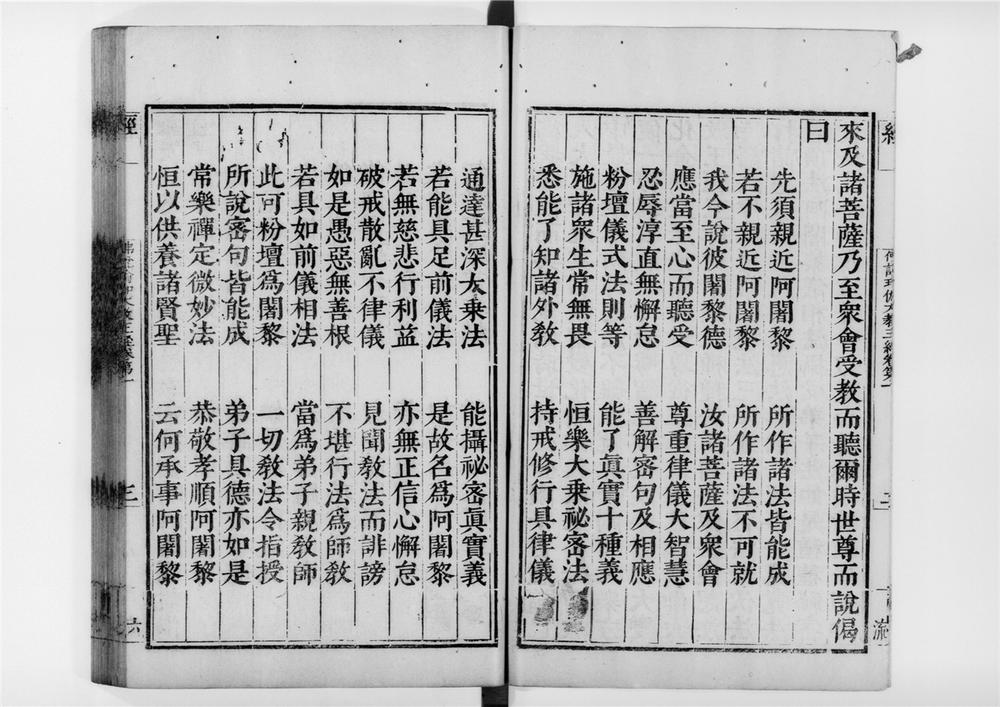 來及諸菩薩乃至衆會受教而聽爾時世尊而說偈
曰
先須親近阿闍黎　所作諸法皆能成
若不親近阿闍黎　所作諸法不可就
我今說彼闍黎德　汝諸菩薩及衆會
應當至心而聽受　尊重律儀大智慧
忍辱淳直無懈怠　善解密句及相應
粉壇儀式法則等　能了眞實十種義
施諸衆生常無畏　恒樂大乘祕密法
悉能了知諸外敎　持戒修行具律儀
通達甚深大乗法　能攝祕密眞實義
若能具足前儀法　是故名爲阿闍黎
若無慈悲行利益　亦無正信心懈怠
破戒散亂不律儀　見聞敎法而誹謗
如是愚惡無善根　不堪行法爲師敎
若具如前儀相法　當爲弟子親敎師
此可粉壇爲闍黎　一切敎法令指授
所說密句皆能成　弟子具德亦如是
常樂禪定微妙法　恭敬孝順阿闍黎
恒以供養諸賢聖　云何承事阿闍黎
經
三
六